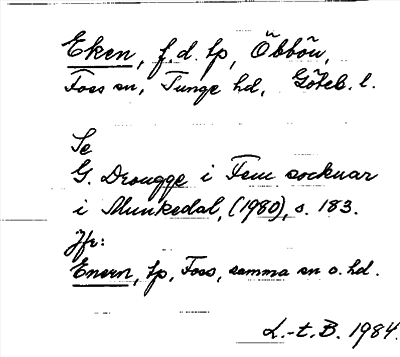 Eken, f.d. lp, Öbbön,
Foss sn, Tunge hd, Göteb. l.
Se
G. Drougge i Fem socknar
i Munkedal, (1980), s. 183.
Jfr:
Enern, lp, Foss, samma sn o. hd.
L.-t. B. 1984.